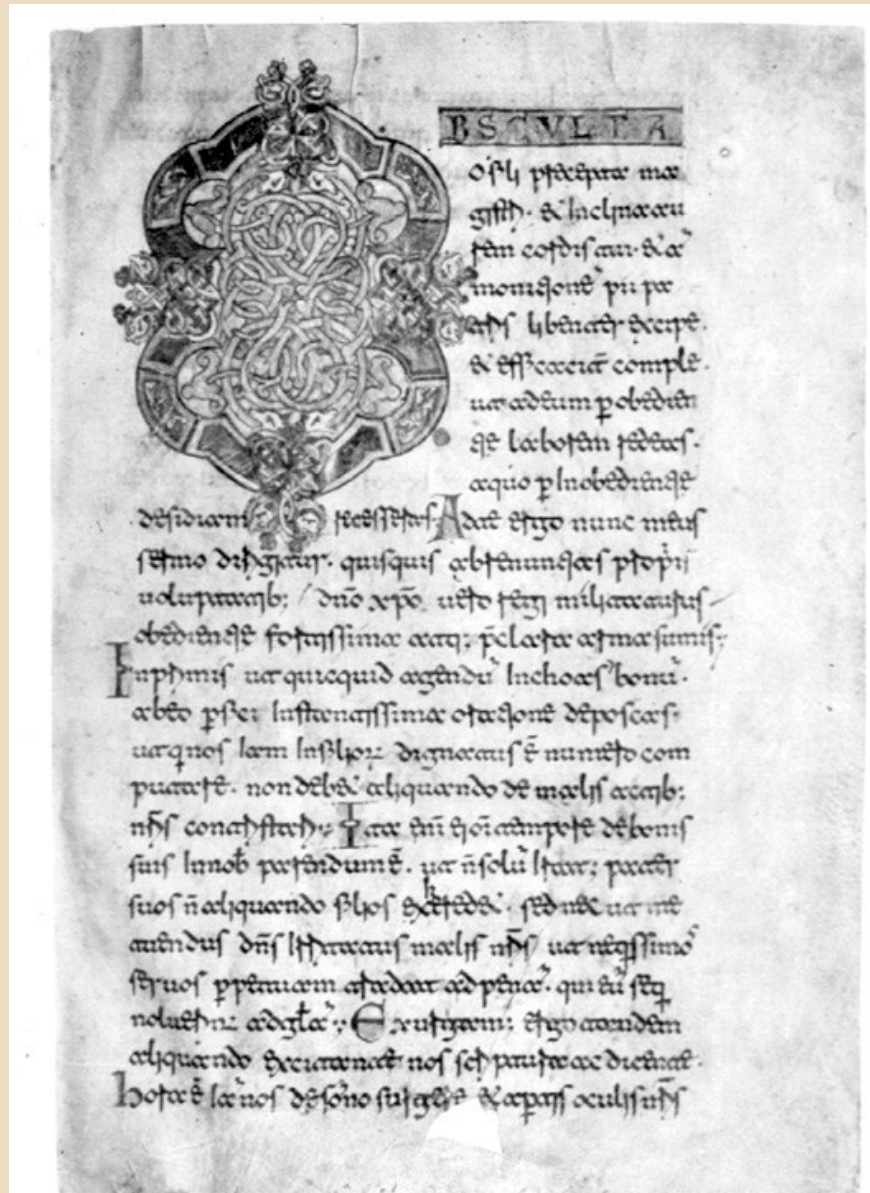 BSCVLTA
o fili p̄cepta ma
gistri· & inclina au
rem cordis tui· & a
monitionē pii pa
tris libenter excipe·
& efficacit̄ comple·
ut ad eum p̱ obedien
tie laborem redeas·
a quo p̱ inobedientie
desidiam recesseras· Ad te ergo nunc meus
sermo dirigitur· quisquis abrenuntias proprii
uoluptatib; dn̄o xp̄o uero regi militaturus
obedientie fortissima atq; p̄clara arma sumis;
Inprimis ut quicquid agendū inchoas bonū·
ab eo p̱fici instantissima oratione deposcas·
ut qi nos iam in filiorꝝ dignatus ē numero com
putare· non debe& aliquando de malis actib;
nr̄is contristari; Ita enī ei om̄i tempore de bonis
suis in nob̄ parendum ē· ut n̄ solū irat; pater
suos n̄ aliquando filios exheredet· sed nec ut me
tuendus dn̄s irritatus malis nr̄is ut neqissimos
seruos p̱petuam tradat ad penā· qui eū seqi
noluerint ad gl̄ā; Exurgam; ergo tandem
aliquando excitante nos scriptura ac dicente·
hora ē iā nos de som̄no surgere & ap̱tis oculis nr̄is